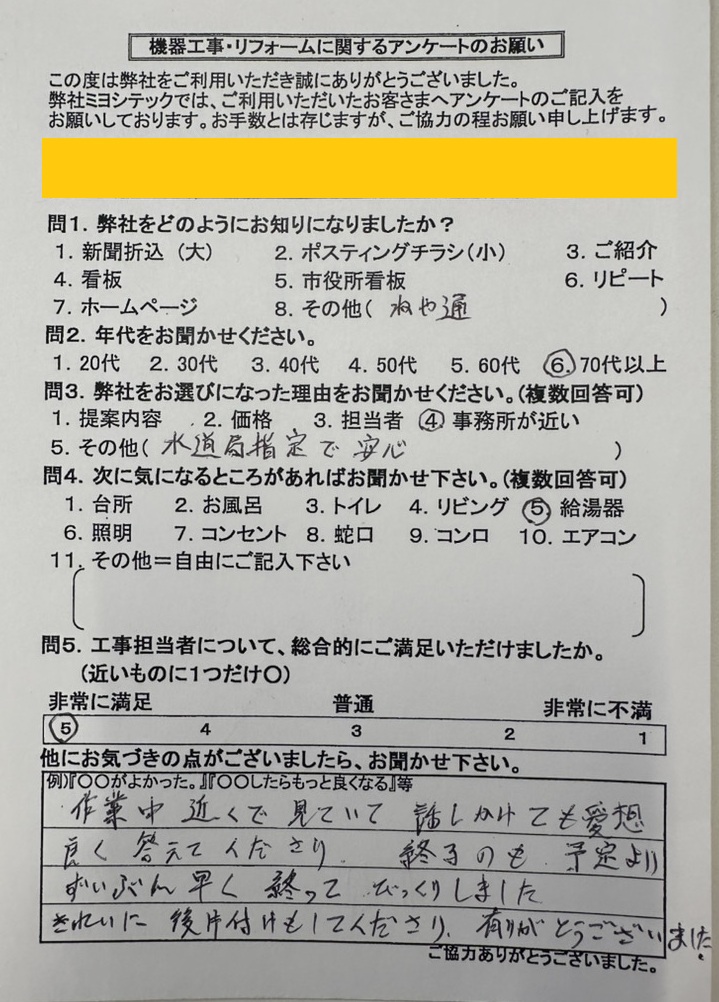 機器工事・リフォームに関するアンケートのお願い
この度は弊社をご利用いただき誠にありがとうございました。
弊社ミヨシテックでは、ご利用いただいたお客さまへアンケートのご記入を
お願いしております。お手数とは存じますが、ご協力の程お願い申し上げます。
問1. 弊社をどのようにお知りになりましたか？
1. 新聞折込（大） 2. ポスティングチラシ（小） 3. ご紹介
4. 看板 5. 市役所看板 6. リピート
7. ホームページ 8. その他( ねや通 )
問2. 年代をお聞かせください。
1. 20代 2. 30代 3. 40代 4. 50代 5. 60代 6. 70代以上
問3. 弊社をお選びになった理由をお聞かせください。(複数回答可)
1. 提案内容 2. 価格 3. 担当者 4 事務所が近い
5. その他( 水道局指定で安心 )
問4. 次に気になるところがあればお聞かせ下さい。(複数回答可)
1. 台所 2. お風呂 3. トイレ 4. リビング 5 給湯器
6. 照明 7. コンセント 8. 蛇口 9. コンロ 10. エアコン
11. その他＝自由にご記入下さい
問5. 工事担当者について、総合的にご満足いただけましたか。
(近いものに1つだけ〇)
非常に満足 普通 非常に不満
5 4 3 2 1
他にお気づきの点がございましたら、お聞かせ下さい。
例)『〇〇がよかった。』『〇〇したらもっと良くなる』等
作業中 近くで見ていて 話しかけても愛想
良く 答えてくださり、 終るのも 予定より
ずいぶん 早く 終って びっくりしました
きれいに 後片付けもしてくださり、有りがとうございました。
ご協力ありがとうございました。